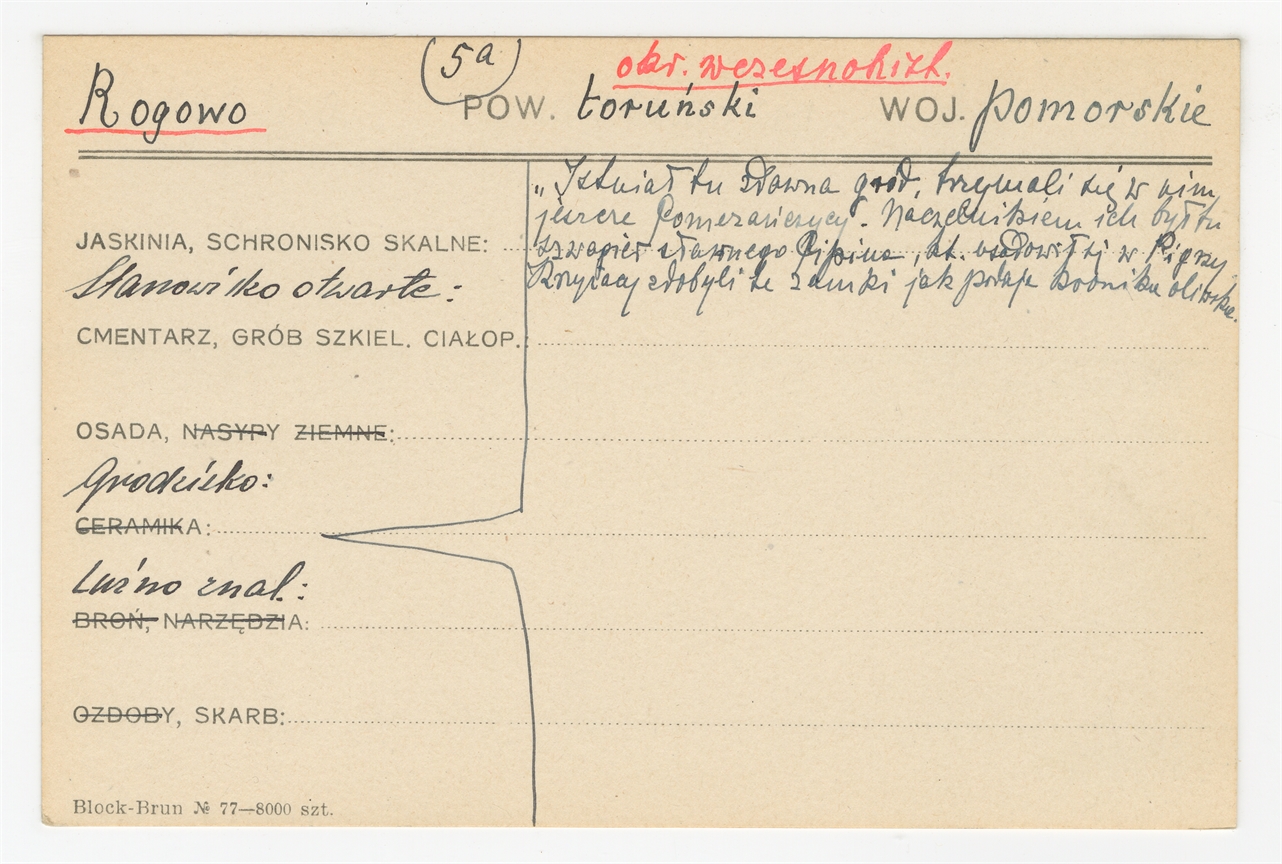 (5a)
okr. wczesnohist.
Rogowo POW. toruński WOJ. pomorskie
„Istniał tu zdawna gród, trzymali się w nim
jeszcze Pomezańczycy. Naczelnikiem ich był tu
JASKINIA, SCHRONISKO SKALNE: szwagier sławnego Pipina, kt. usadowił się w Pigrzy.
Stanowisko otwarte: Krzyżacy zdobyli te zamki jak podaje kronika oliwska.
CMENTARZ, GRÓB SZKIEL. CIAŁOP.:
OSADA, NASYPY ZIEMNE:
Grodzisko:
CERAMIKA:
Luźno znal.:
BROŃ, NARZĘDZIA:
OZDOBY, SKARB:
Block-Brun № 77—8000 szt.